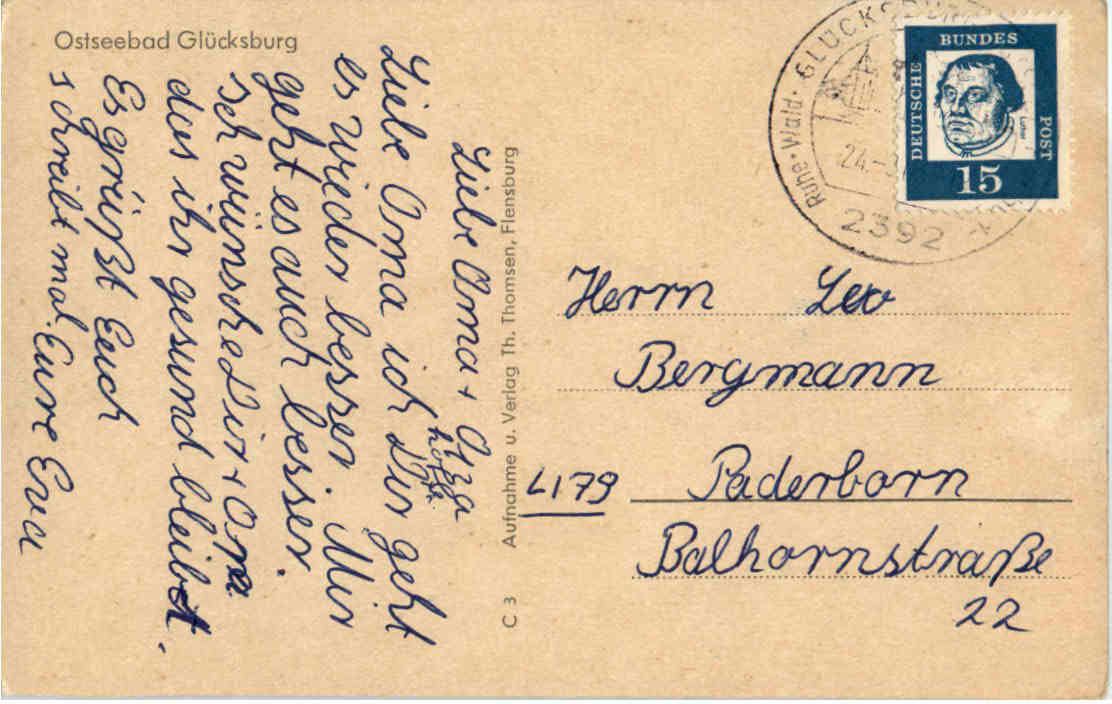 Ostseebad Glücksburg
Liebe Oma + Opa
Liebe Oma ich hoffe Dir geht
es wieder besser. Mir
geht es auch besser.
Ich wünsche Dir + Opa
das ihr gesund bleibt.
Es grüßt Euch
schreibt mal. Eure Eva
C 3 Aufnahme u. Verlag Th. Thomsen, Flensburg
Ruhe · Wald · GLÜCKSBURG
24.-
2392
DEUTSCHE BUNDES POST
Luther
15
Herrn Leo
Bergmann
4179 Paderborn
Balhornstraße
22